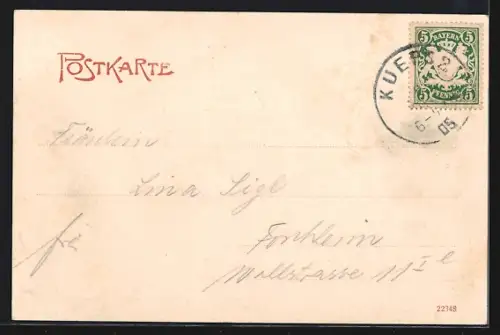 POSTKARTE
5 BAYERN 5
5 PFENNIG 5
KUEPS
6-7
05
Fräulein
Lina Sigl
frei Forchheim
Wallstrasse 11 I
22748